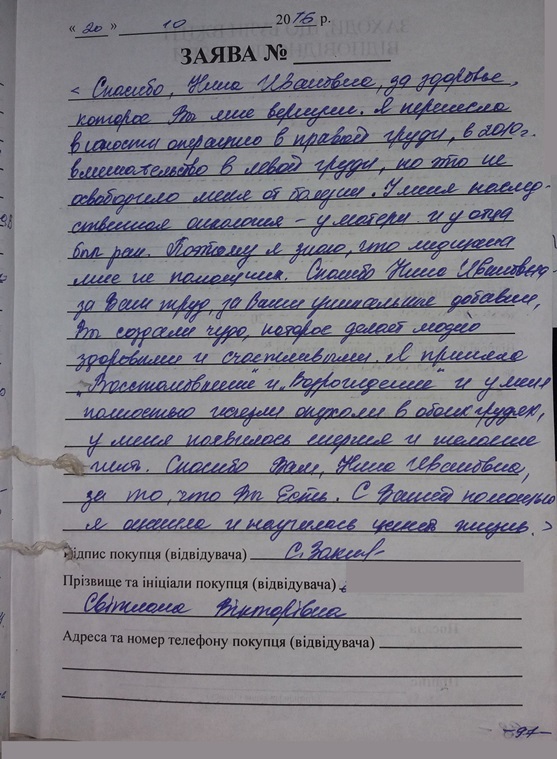 « 20 » 10 20 16 р.
ЗАЯВА №
< Спасибо, Нина Ивановна, за здоровье,
которое Вы мне вернули. Я перенесла
в юности операцию в правой груди, в 2010 г.
вмешательство в левой груди, но это не
освободило меня от болезни. У меня наслед-
ственная онкология – у матери и у отца
был рак. Поэтому я знаю, что медицина
мне не помощник. Спасибо Нина Ивановна
за Ваш труд, за Ваши уникальные добавки,
Вы создали чудо, которое делает людей
здоровыми и счастливыми. Я приняла
"Восстановление" и "Возрождение" и у меня
полностью исчезли опухоли в обоих грудях,
у меня появилось энергия и желание
жить. Спасибо Вам, Нина Ивановна,
за то, что Вы Есть. С Вашей помощью
я ожила и научилась жизнь. >
Підпис покупця (відвідувача)
Прізвище та ініціали покупця (відвідувача)
Світлана Вікторівна
Адреса та номер телефону покупця (відвідувача)
-97-